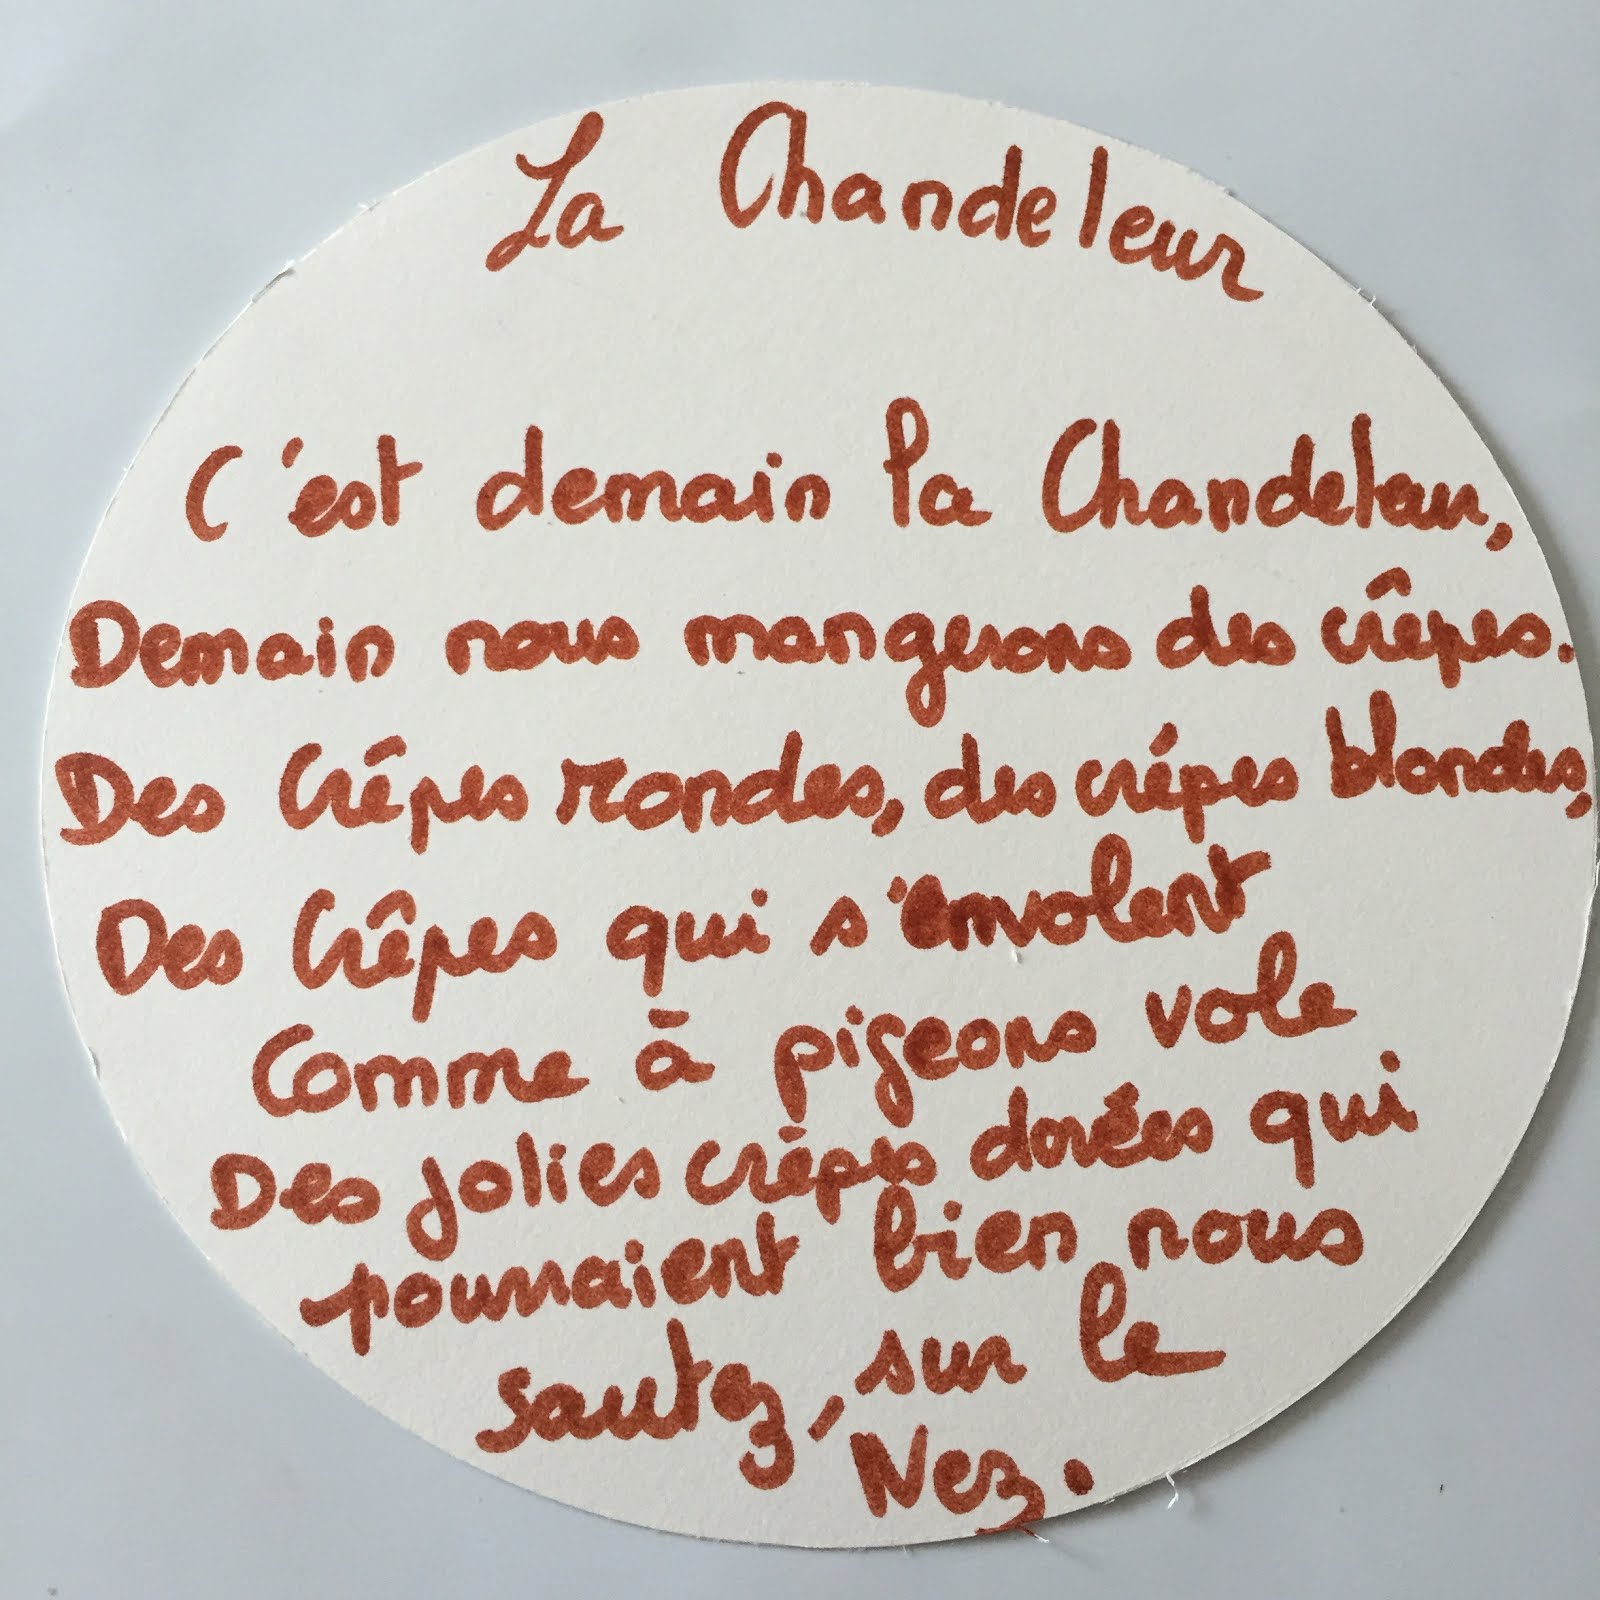 La Chandeleur
C'est demain la Chandeleur,
Demain nous mangerons des crêpes.
Des Crêpes rondes, des crêpes blondes,
Des Crêpes qui s'envolent
Comme à pigeons vole
Des jolies crêpes dorées qui
pourraient bien nous
sautez, sur le
Nez.